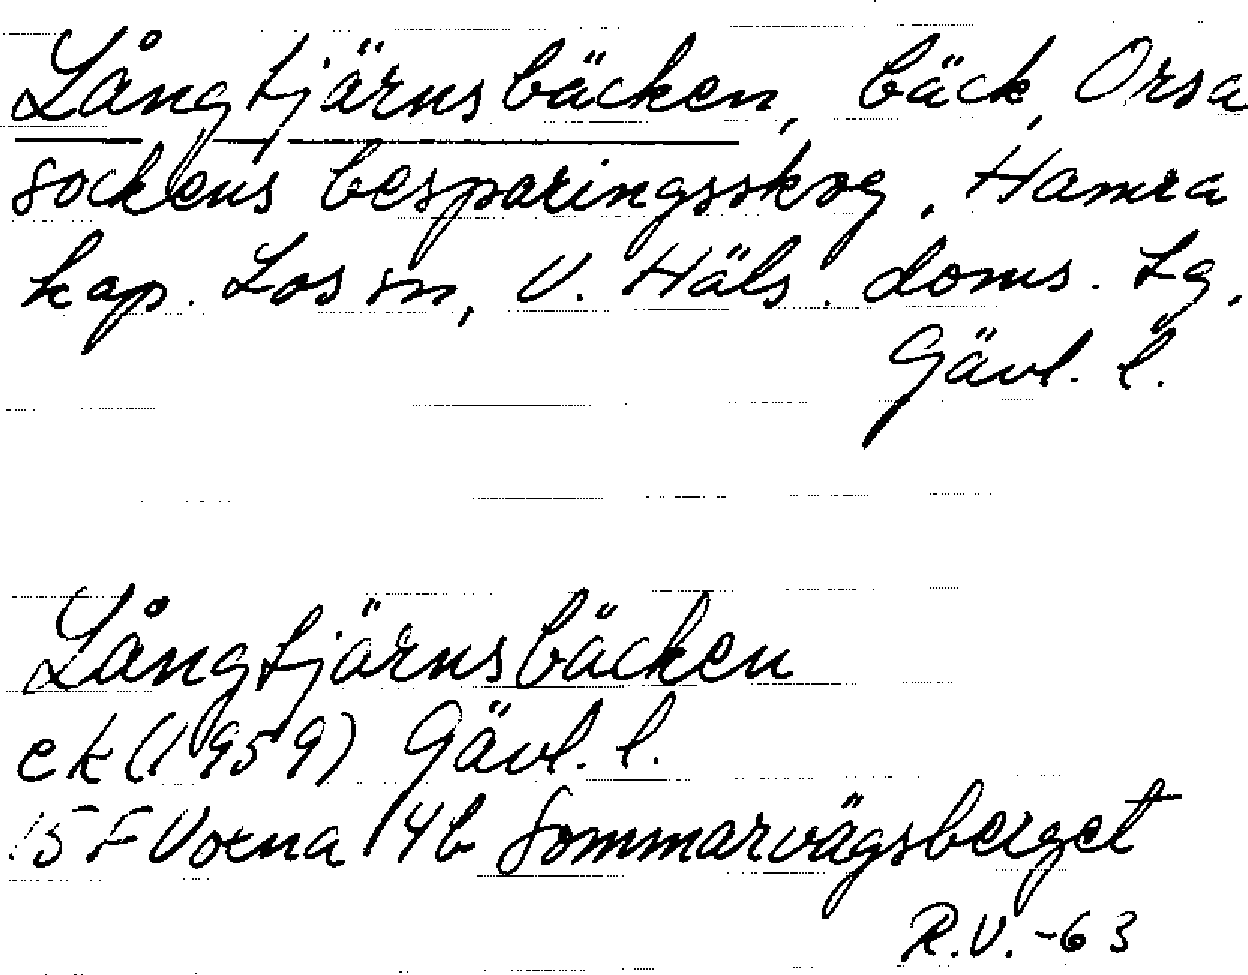 Långtjärnsbäcken, bäck, Orsa
sockens besparingsskog, Hamra
kap. Los sn, V. Häls. doms. lg,
Gävl. l.
Långtjärnsbäcken
ek (1959) Gävl. l.
15 F Voxna 4b Sommarvägsberget
R.V. -63